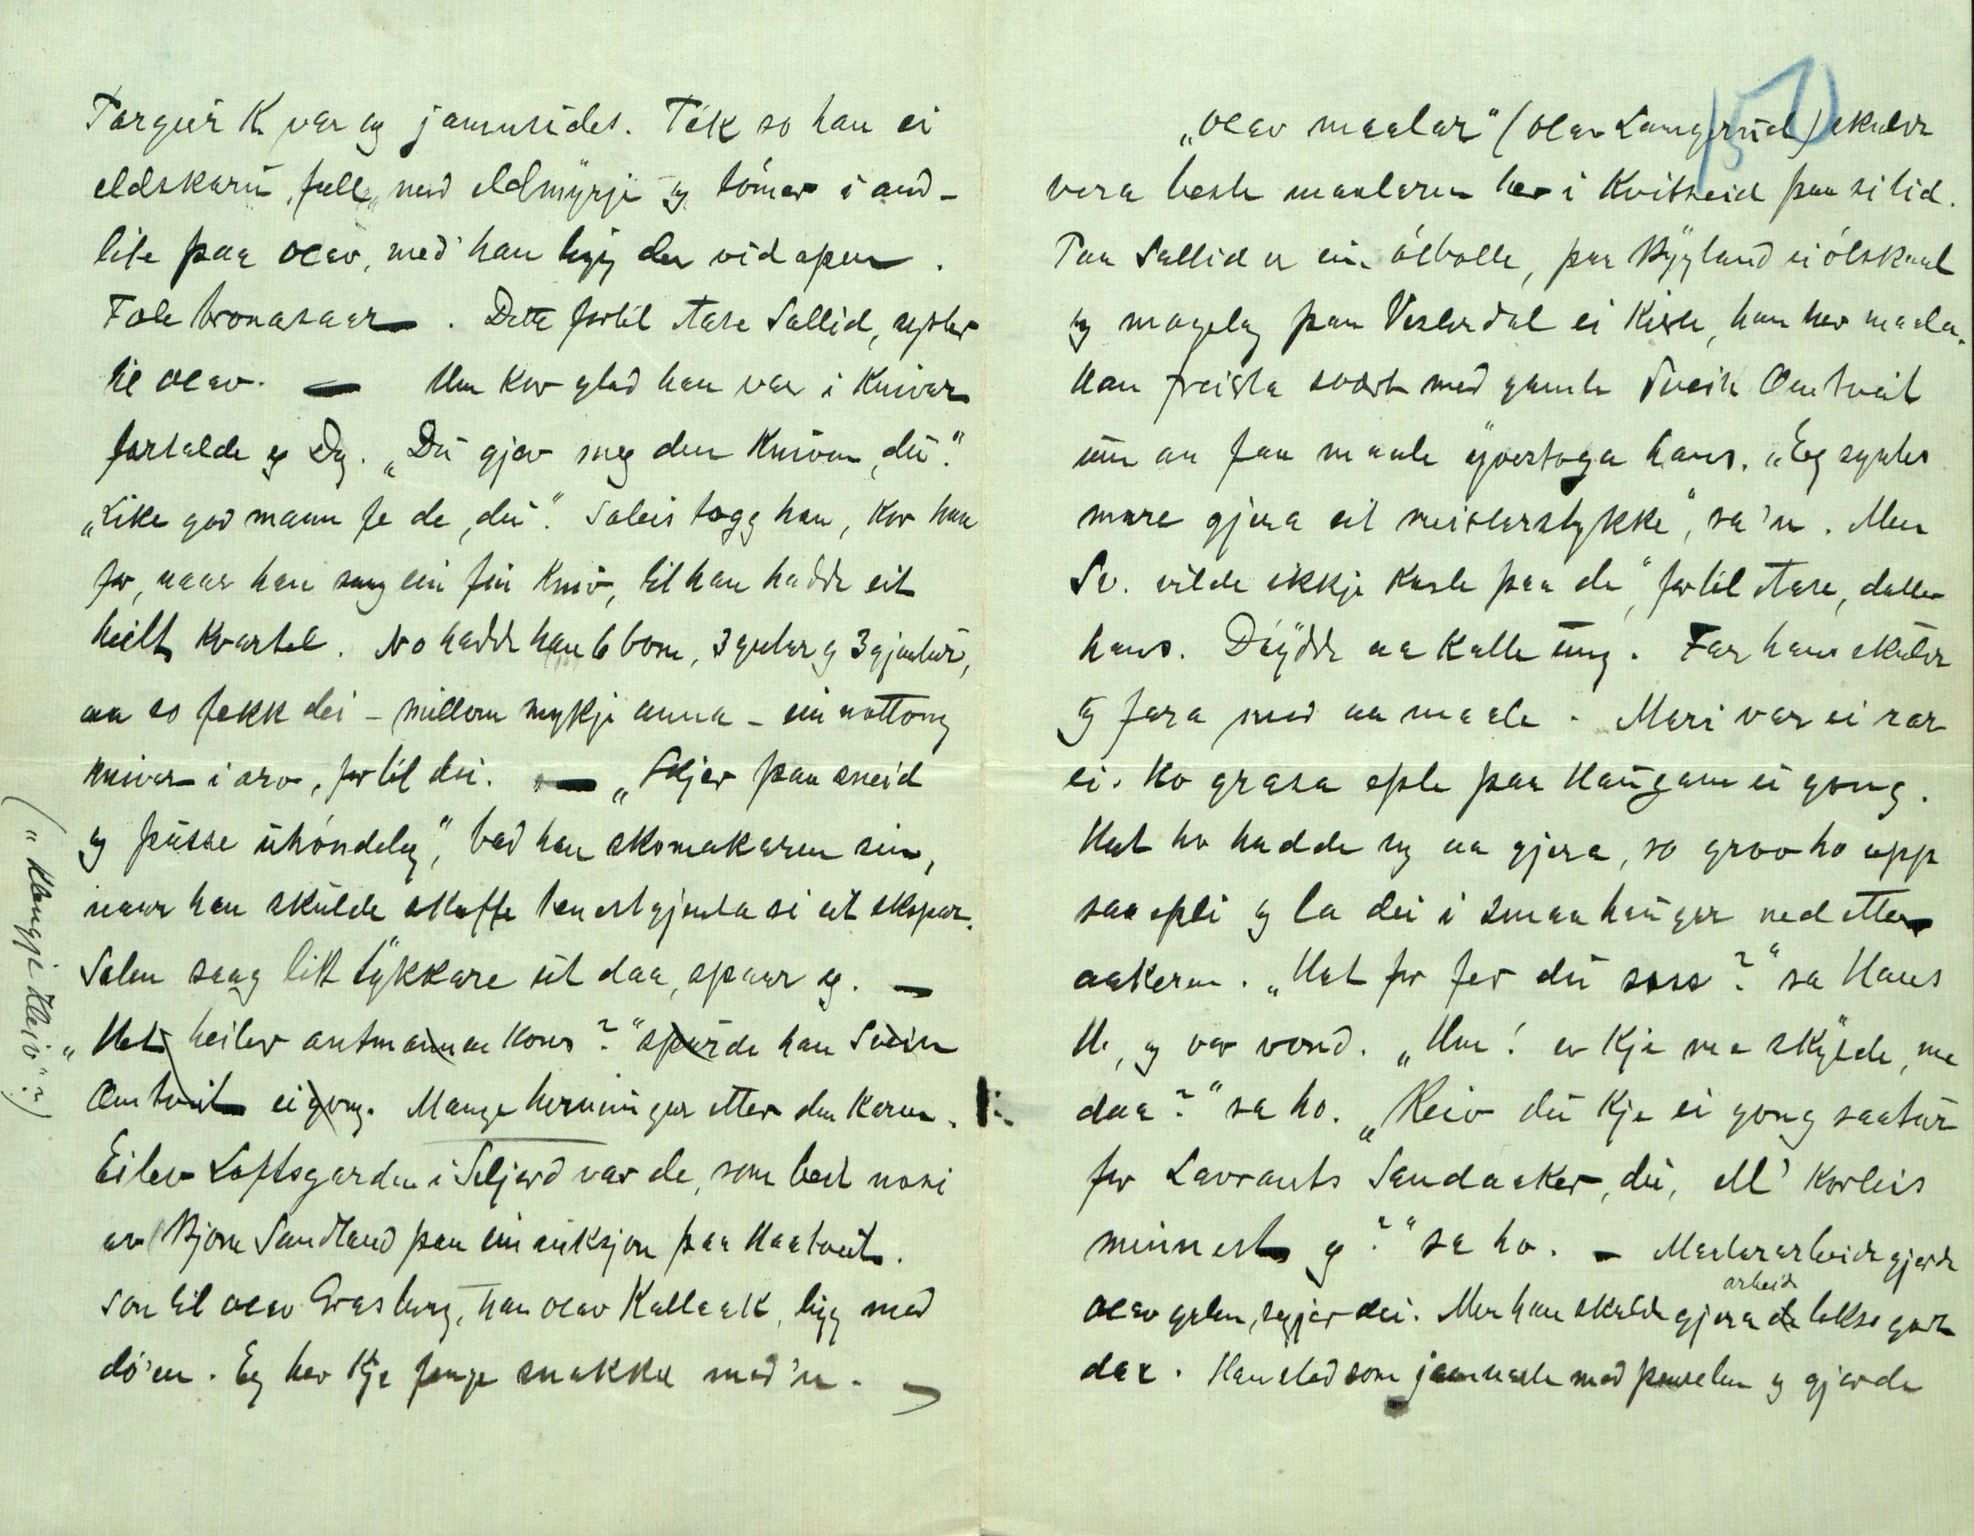 Targeir K var og jamsides. Tek so han ei
eldskarú, full, med eldmyrje og tömer i and-
lite paa Olav, med han ligg der vid open.
Fole bronasaar. Dette fortel Aase Sallid, syster
til Olav. — Um kor glad han var i Knivar
fortalde eg Dg. „Du gjev meg den Kniven, du".
„Like god mann fe de, du". Soleis togg han, kor han
for, naar han saag ein fin Kniv, til han hadde eit
heilt Kvartel. No hadde han 6 born, 3 gutar og 3 gjentur,
aa so fekk dei – millom mykje anna – ein nottong
knivar i arv, fortel dei. — „Skjer paa sneid
og pusse uhóndeleg", bad han skomakaren sin,
naar han skulde skaffe tenestgjenta si eit skopar.
Solen saag litt tykkare ut daa, spaar eg. —
„Het heiler antmannen kons?" spurde han Svein
Omtveit eigong. Mange herningar etter den Karen.
("Klengje Kleiv"?)
Eilev Loftsgarden i Seljord var de, som beit nosi
av Bjorn Sandland paa ein auksjon paa Haatveit.
Son til Olav Grasberg, han Olav Kallaak, ligg med
dö'en. Eg hev Kje fenge snakka med 'n.
„Olav maalar" (Olav Langerud) skulde
vera beste maalaren her i Kvitseid paa si tid.
Paa Sallid er ein ölbolle, paa Bygland ei ölskaal
og mogeleg paa Veslerdal ei Kiste, han hev maala.
Han freista svært med gamle Svein Omtveit
um aa faa maale yverstoga hans. „Eg syntes
mare gjera eit meisterstykke", sa'n. Men
Sv. vilde ikkje Koste paa de", fortel Aase, dotter
hans. Döydde aa Kalle ung. Far hans skulde
og fara med aa maale. Mari var ei rar
ei. Ho grasa eple paa Haugann ei gong.
Hat ho hadde ny aa gjera, so grov ho upp
saaepli og la dei i smaa haugar ned etter
aakeren. „Hat for fer du soss?" sa Hans
H., og var vond. „Hm! er Kje me skylde, me
daa?" sa ho. „Reiv du Kje ei gong saatur
for Lavrants Sandaaker, du, ell' Korleis
minnest eg?" sa ho. – Maalararbeide gjorde
Olav gelen, segjer dei. Men han skulde gjera arbeide lekso godt
daa. Han stod som jamnaste med penselen og gjorde